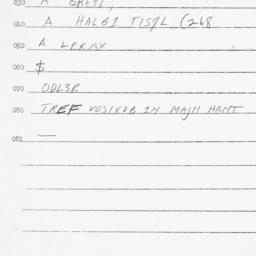 030 A BRETL,
040 A HALGI TISYL, (268
050 A LEKAY
060 $
070 ODL3R
080 TREF VOSIVOB IN MAJN HANT
081 —